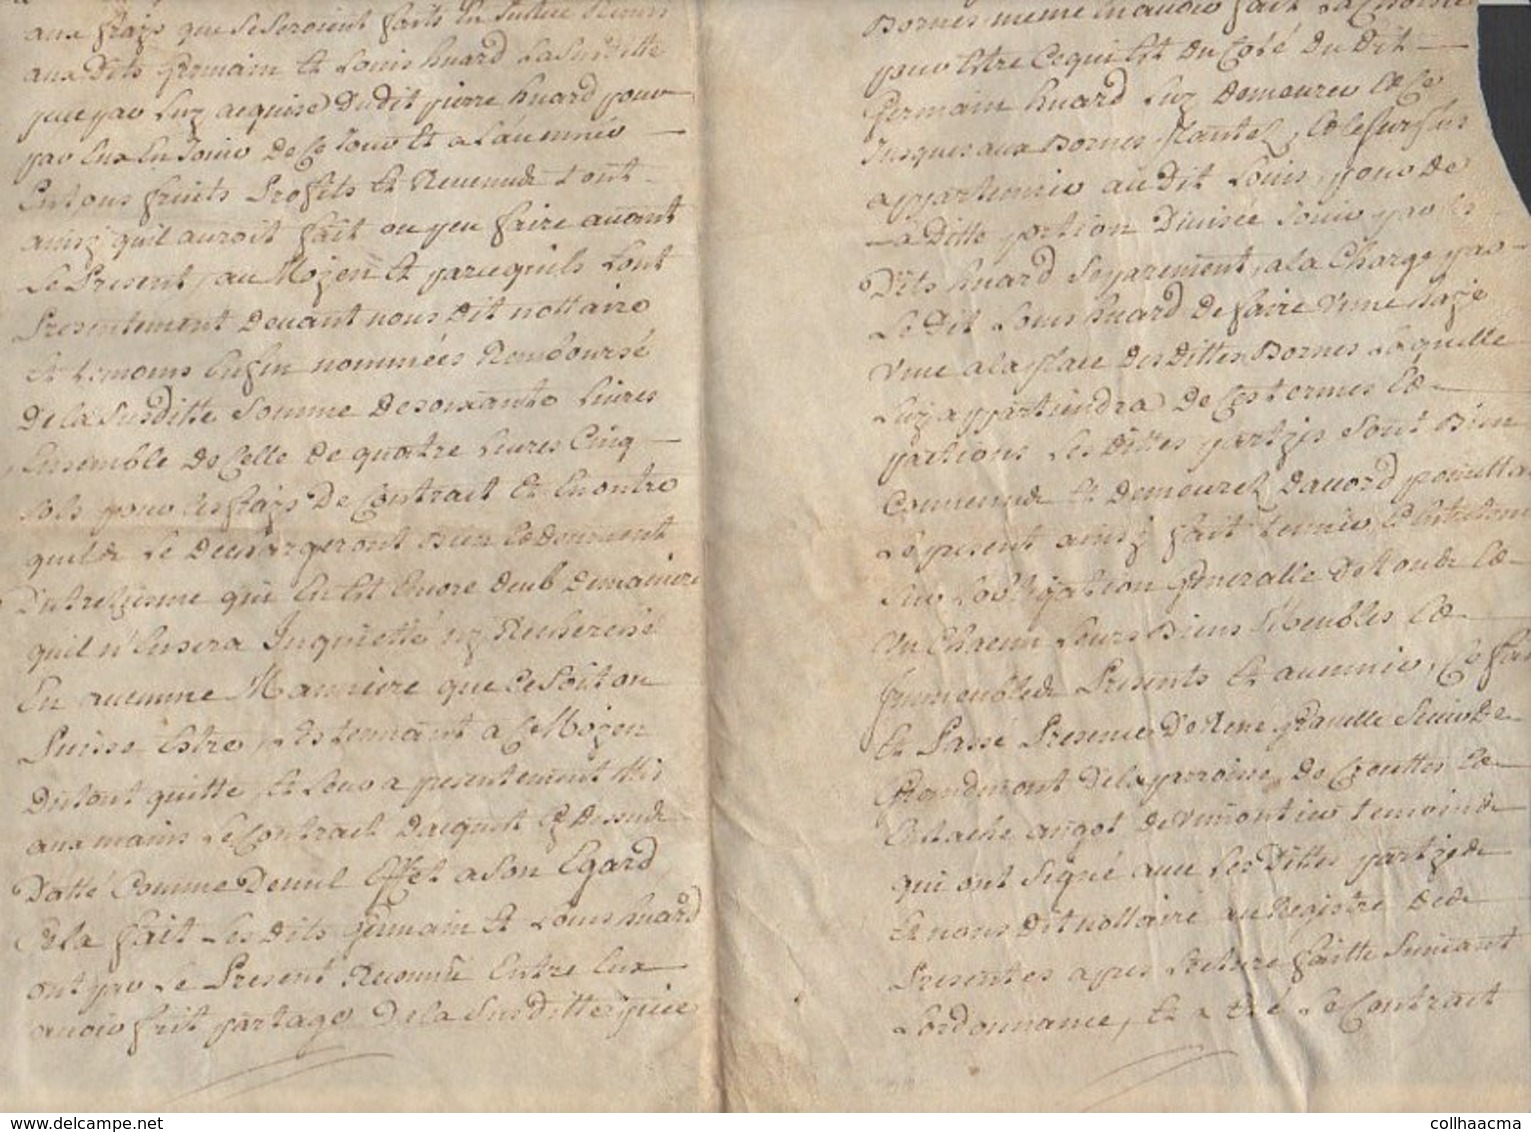 aux frais que se seroient faits En Justice Remis
aux Dits Germain Et Louis huard La Susditte
piece par Luy acquise Du dit pierre huard pour
par Eux En Jouir De Ce Jour Et a L'auenir
En tous fruits Profits Et Reuenus tout
ainsy quil auroit fait ou peu faire auant
Le Present, au Moyen Et parcequils Lont
Presentement Deuant nous Dit nottaire
Et temoins Enfin nommées Remboursé
De la Susditte Somme De soixante Liures
Ensemble De Celle De quatre Liures Cinq
sols pour les frais De Contrait Et En outre
quils Le Dechargeront Bien
treizieme qui En Est Encore deub De maniere
quil n'Ensera Inquietté ny Recherché
En aucunne Manniere que Ce Soit ou
Puisse Estre, Les tennant a Ce Moyen
Du tout quitte, Et Leur a presentement Mis
aux mains Le Contract Dacquest Cy Dessus
Datté Comme De nul Effet a Son Egard
Cela fait Les Dits Germain Et Louis huard
ont par Le Present Reconnu Entre Eux
auoir fait partage De la Susditte piece
Bornes meme En auoir fait La
pour Estre Ce qui Est Du Coté Du Dit
Germain huard Luy Demeurer Et Ce
Jusques aux Bornes Plantez, Et le Surplus
appartennir au Dit Louis, pour De
La Ditte portion Diuisée Jouir par Les
Dits huard Separement, a la Charge par
Le Dit Louis huard De faire Vnne haye
Viue a la place Des Dittes Bornes Laquelle
Luy appartiendra De Ces termes Et
partions Les Dittes partyes Sont Bien
Conuenus Et Demeurez Daccord
Le present ainsy fait tennir Et Entretenir
Sur Lobligation Generalle De tous Et
Vn Chacun Leurs Biens Meubles Et
Immeubles Presents Et auennir, Ce fait
Et Passé Presence De Rene
Grandmont De la parroisse De Et
Eustache angot De Vimontier temoins
qui ont Signé auec Les Dittes partyes
Et nous Dit nottaire au Registre Des
Presentes apres Lecture faitte Suiuant
Lordonnance, Et a Eté Le Contract
delcampe.net
collhaacma